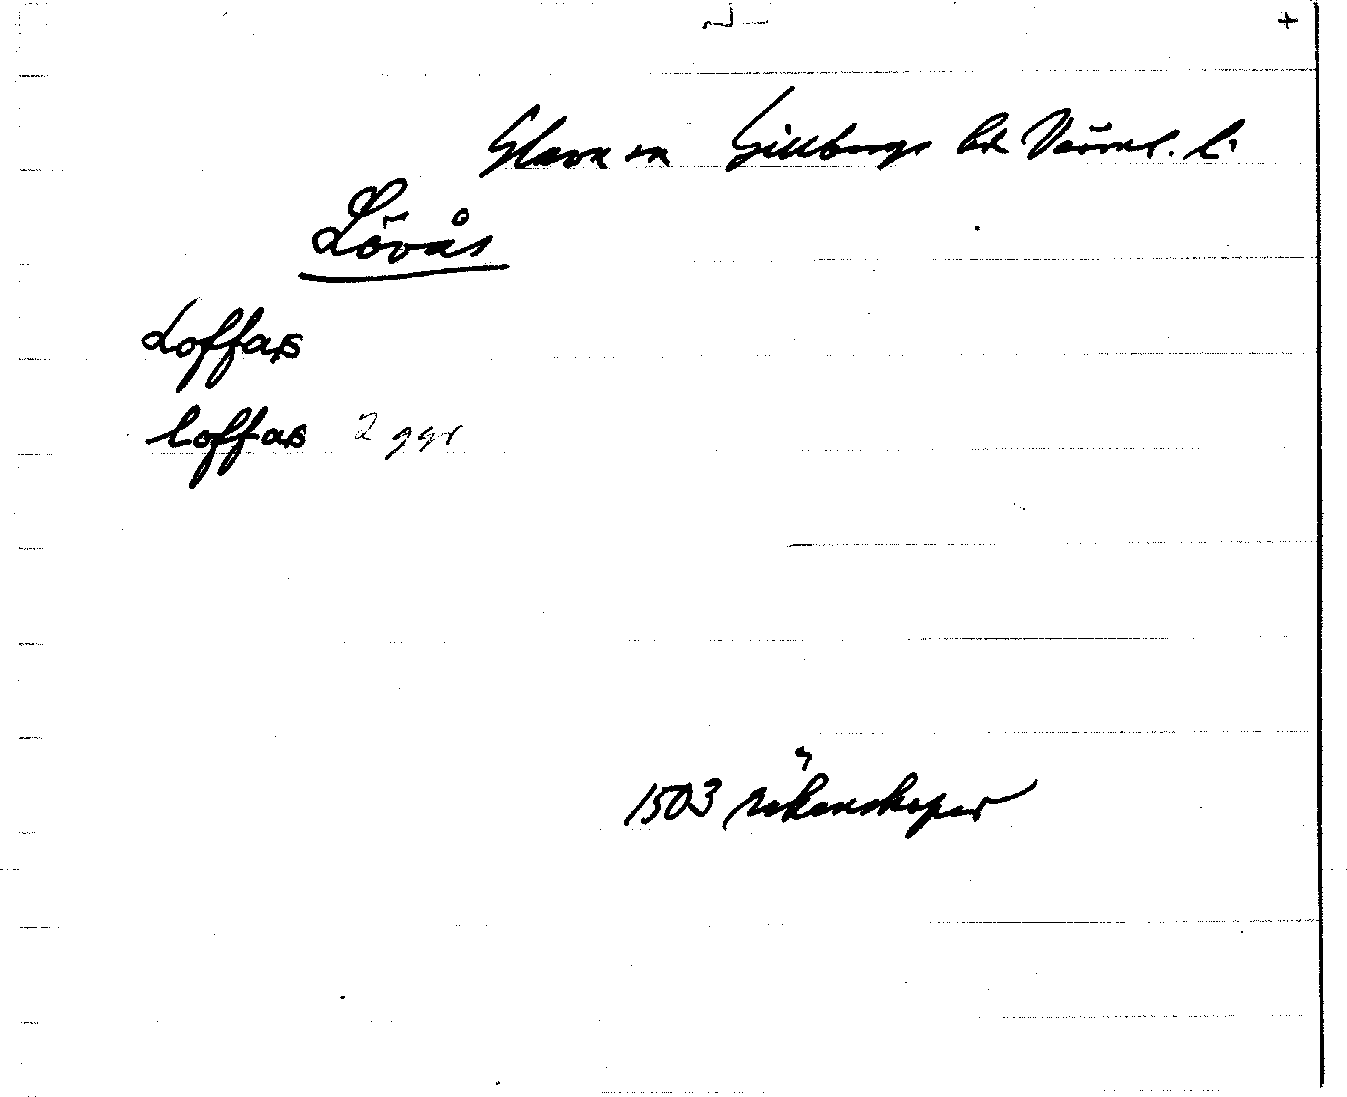 Glava sn Gillbergs hd Värml. l.
Lövås
Loffas
loffas 2 ggr
1503 räkenskaper